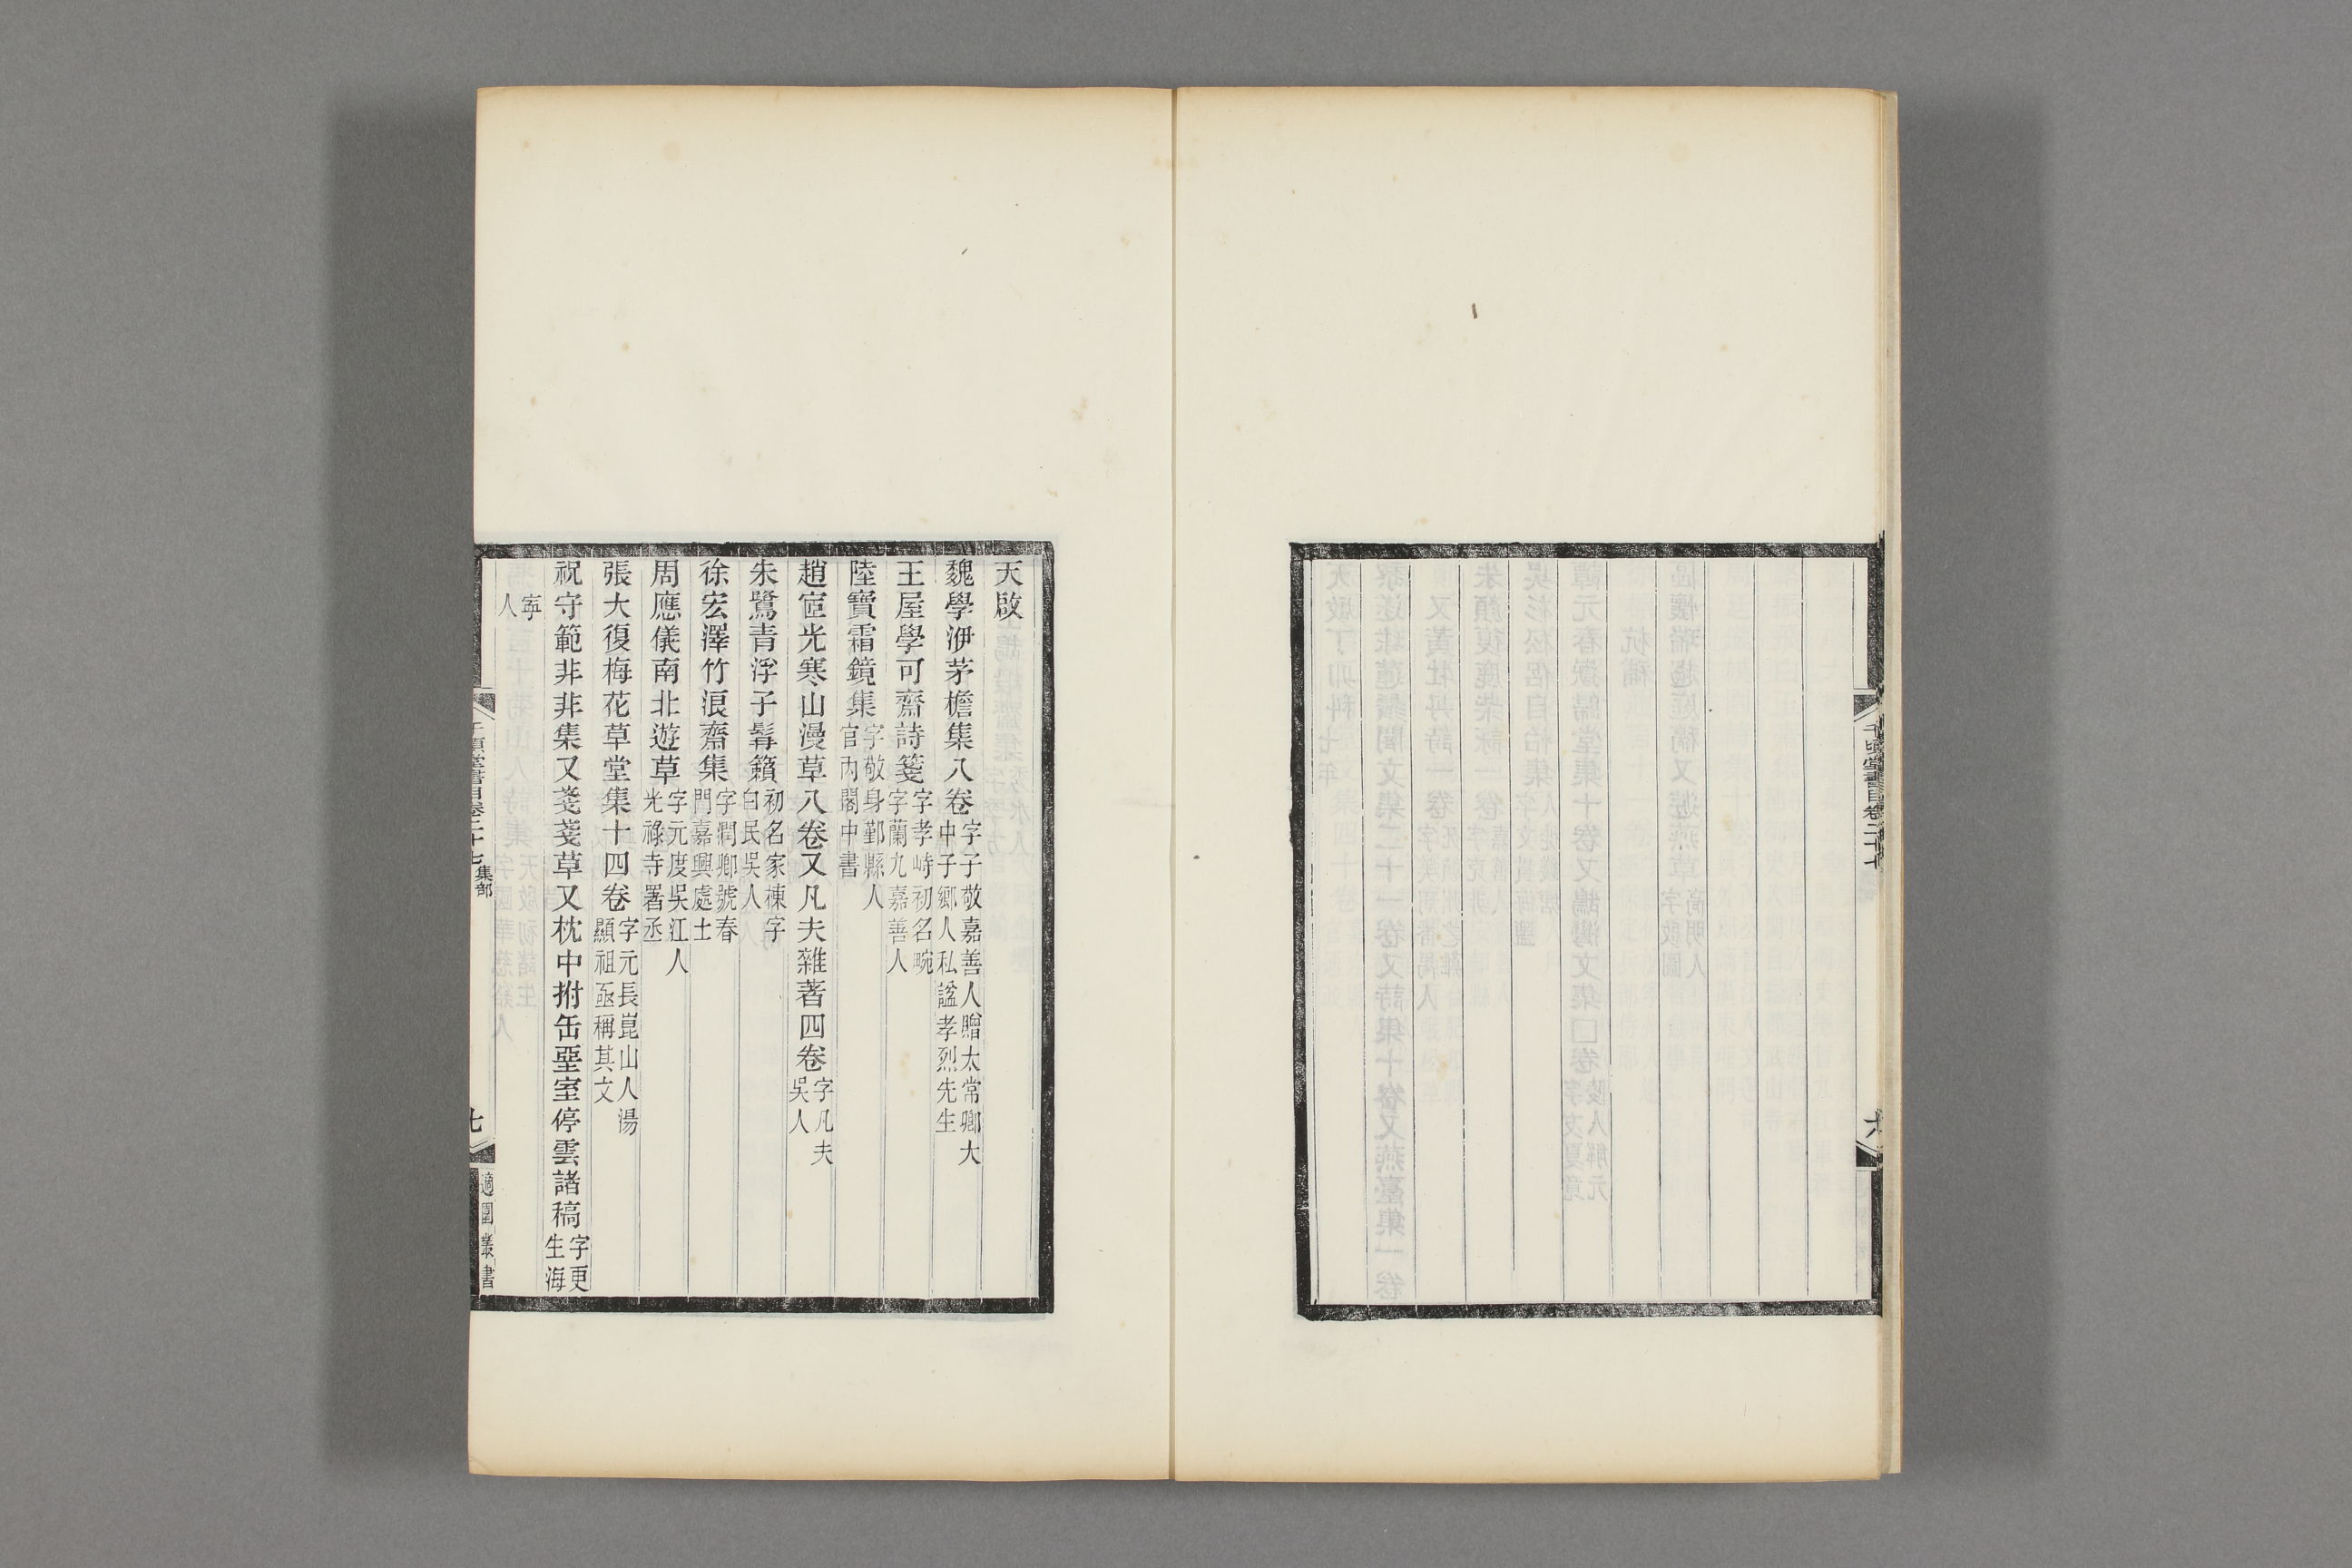 千頃堂書目卷二十七
天啟
魏學洢茅檐集八卷字子敬嘉善人贈太常卿大
中子鄉人私諡孝烈先生
王屋學可齋詩箋字孝峙初名畹
字蘭九嘉善人
陸寶霜鏡集字敬身鄞縣人
官內閣中書
趙宧光寒山漫草八卷又凡夫雜著四卷字凡夫
吳人
朱鷺青浮子髯籟初名家棟字
白民吳人
徐宏澤竹浪齋集字潤卿號春
門嘉興處士
周應儀南北遊草字元度吳江人
光祿寺署丞
張大復梅花草堂集十四卷字元長崑山人湯
顯祖亟稱其文
祝守範非非集又菱菱草又枕中拊缶堊室停雲諸稿字更
生海
寧
人
千頃堂書目卷二十七 集部
七
適園叢書